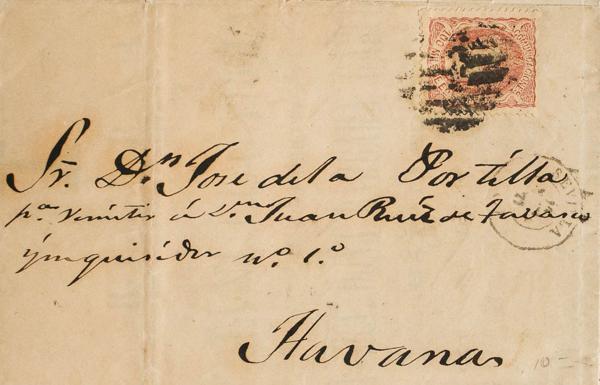 Sr. Dn. Jose de la Portilla
pa. remitir á Dn. Juan Ruiz de
ynquisidor no. 1.o
Havana
SEVILLA
10